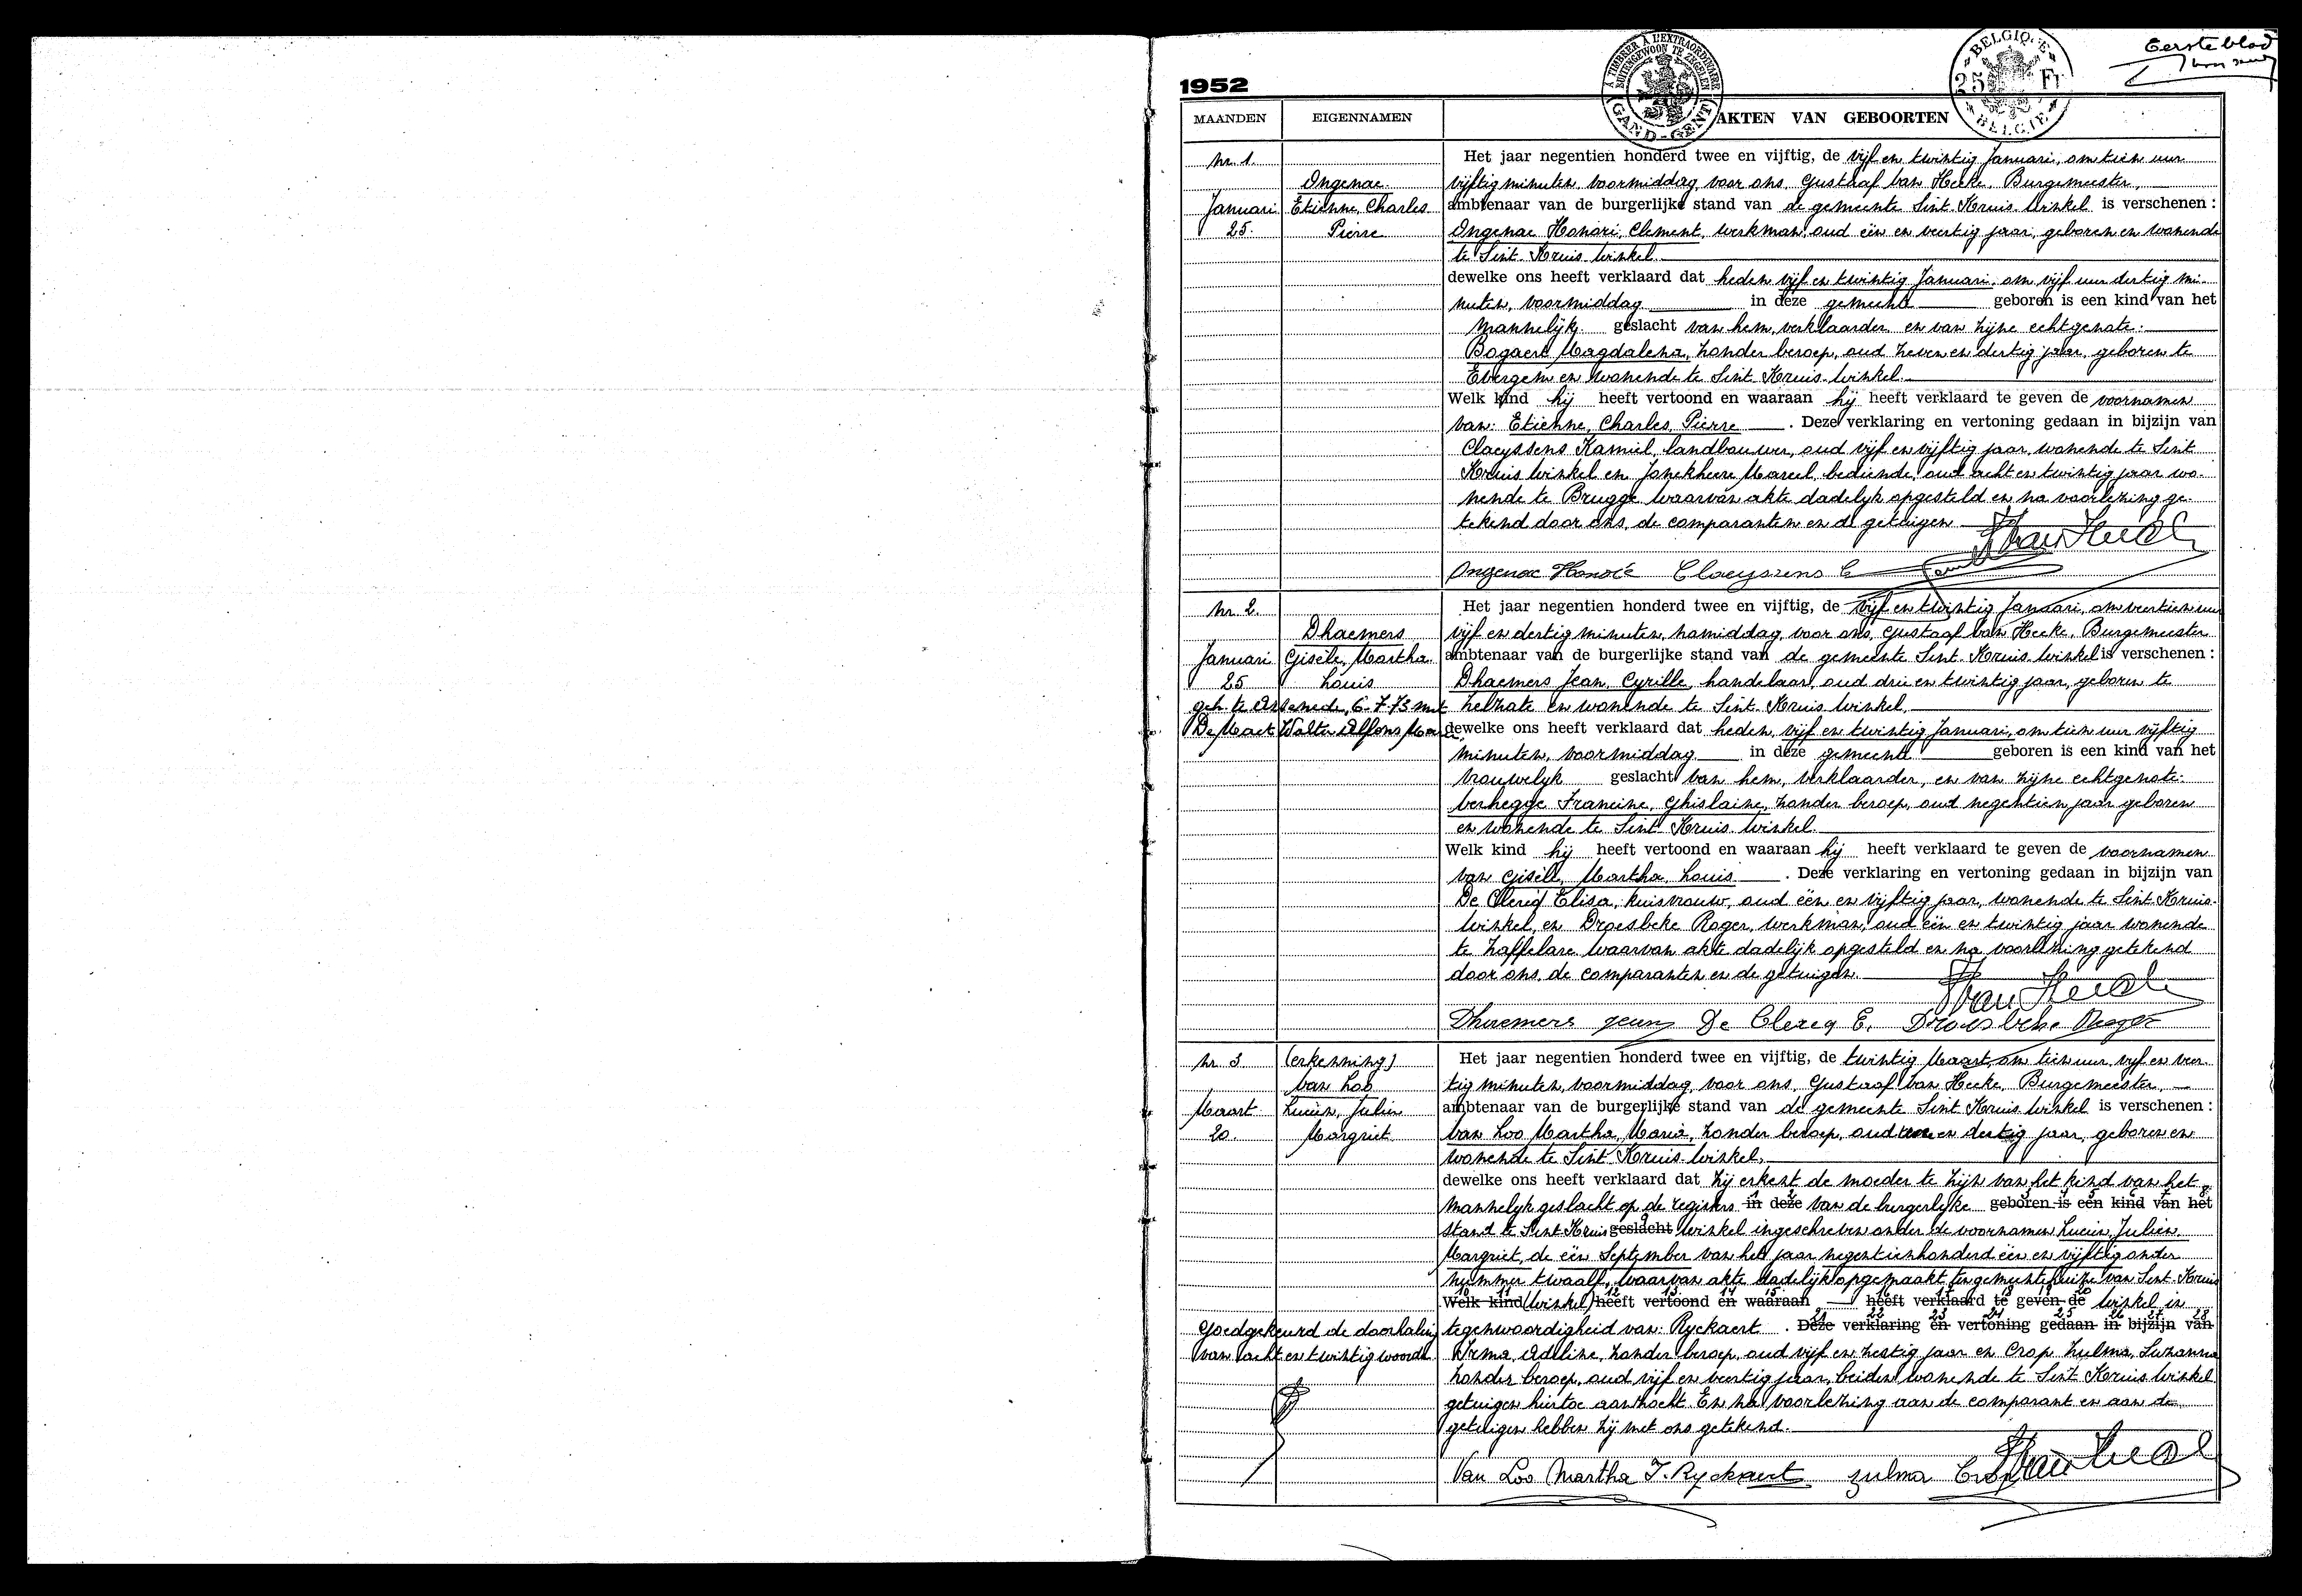 Eerste blad
1952
A TIMBRER A L'EXTRAORDINAIRE
BUITENGEWOON TE ZEGELEN
GAND-GENT
BELGIQUE
25 Fr
BELGIE
MAANDEN EIGENNAMEN AKTEN VAN GEBOORTEN
nr. 1. Het jaar negentien honderd twee en vijftig, de vijf en twintig Januari, om tien uur
Ongenae vijftig minuten voormiddag, voor ons, Gustaaf Van Hecke, Burgemeester,
Januari Etienne, Charles ambtenaar van de burgerlijke stand van de gemeente Sint Kruis Winkel is verschenen :
25. Pierre Ongenae Honoré, Clement, werkman, oud één en veertig jaar, geboren en wonende
te Sint Kruis Winkel.
dewelke ons heeft verklaard dat heden vijf en twintig Januari, om vijf uur dertig mi-
nuten, voormiddag in deze gemeente geboren is een kind van het
mannelijk geslacht van hem, verklaarder en van zijne echtgenote:
Bogaert Magdalena, zonder beroep, oud zeven en dertig jaar, geboren te
Evergem en wonende te Sint Kruis-Winkel.
Welk kind hij heeft vertoond en waaraan hij heeft verklaard te geven de voornamen
van: Etienne, Charles, Pierre . Deze verklaring en vertoning gedaan in bijzijn van
Claeyssens Kamiel, landbouwer, oud vijf en vijftig jaar, wonende te Sint
Kruis Winkel en Jonckheere Marcel, bediende, oud acht en twintig jaar wo-
nende te Brugge waarvan akte dadelijk opgesteld en na voorlezing ge-
tekend door ons, de comparanten en de getuigen
Ongenae Honoré Claeyssens C
nr. 2. Het jaar negentien honderd twee en vijftig, de vijf en twintig Januari, om veertien uur
Dhaemers vijf en dertig minuten, namiddag, voor ons, Gustaaf Van Hecke, Burgemeester
Januari Gisèle, Martha ambtenaar van de burgerlijke stand van de gemeente Sint Kruis Winkel is verschenen :
25 Louis Dhaemers Jean, Cyrille, handelaar, oud drie en twintig jaar, geboren te
geh. te Assenede, 6-7-73 met Zelzate en wonende te Sint Kruis Winkel.
De Maet Walter Alfons dewelke ons heeft verklaard dat heden, vijf en twintig Januari, om tien uur vijftig
minuten, voormiddag in deze gemeente geboren is een kind van het
vrouwelijk geslacht van hem, verklaarder, en van zijne echtgenote:
Verhegge Francine, Ghislaine, zonder beroep, oud negentien jaar geboren
en wonende te Sint Kruis Winkel.
Welk kind hij heeft vertoond en waaraan hij heeft verklaard te geven de voornamen
van Gisèle, Martha, Louis . Deze verklaring en vertoning gedaan in bijzijn van
De Clercq Elisa, huisvrouw, oud één en vijftig jaar, wonende te Sint Kruis-
Winkel, en Droesbeke Roger, werkman, oud één en twintig jaar wonende
te Zaffelare waarvan akte dadelijk opgesteld en na voorlezing getekend
door ons, de comparanten en de getuigen.
Dhaemers Jean De Clercq E. Droesbeke Roger
nr. 3 (erkenning) Het jaar negentien honderd twee en vijftig, de twintig Maart, om tien uur, vijf en veer-
Van Loo tig minuten, voormiddag, voor ons, Gustaaf Van Hecke, Burgemeester,
Maart Lucien, Julien ambtenaar van de burgerlijke stand van de gemeente Sint Kruis Winkel is verschenen :
20. Margriet Van Loo Martha, Maria, zonder beroep, oud en dertig jaar, geboren en
wonende te Sint Kruis-Winkel.
dewelke ons heeft verklaard dat zij erkent de moeder te zijn van het kind van het
mannelijk geslacht op de registers in deze van de burgerlijke geboren is een kind van het
stand te Sint Kruis geslacht Winkel ingeschreven onder de voornamen Lucien, Julien,
Margriet, de één September van het jaar negentienhonderd één en vijftig onder
nummer twaalf, waarvan akte dadelijk opgemaakt ten gemeentehuize van Sint-Kruis
Welk kind (Winkel) heeft vertoond en waaraan heeft verklaard te geven de Winkel in
Goedgekeurd de doorhaling tegenwoordigheid van: Ryckaert . Deze verklaring en vertoning gedaan in bijzijn van
van acht en twintig woorden Irma, Adeline, zonder beroep, oud vijf en zestig jaar en Crop Zulma, Suzanna
zonder beroep, oud vijf en veertig jaar, beiden wonende te Sint Kruis Winkel
getuigen hiertoe aanzocht. En na voorlezing aan de comparant en aan de
getuigen hebben zij met ons getekend.
Van Loo Martha I. Ryckaert Zulma Crop